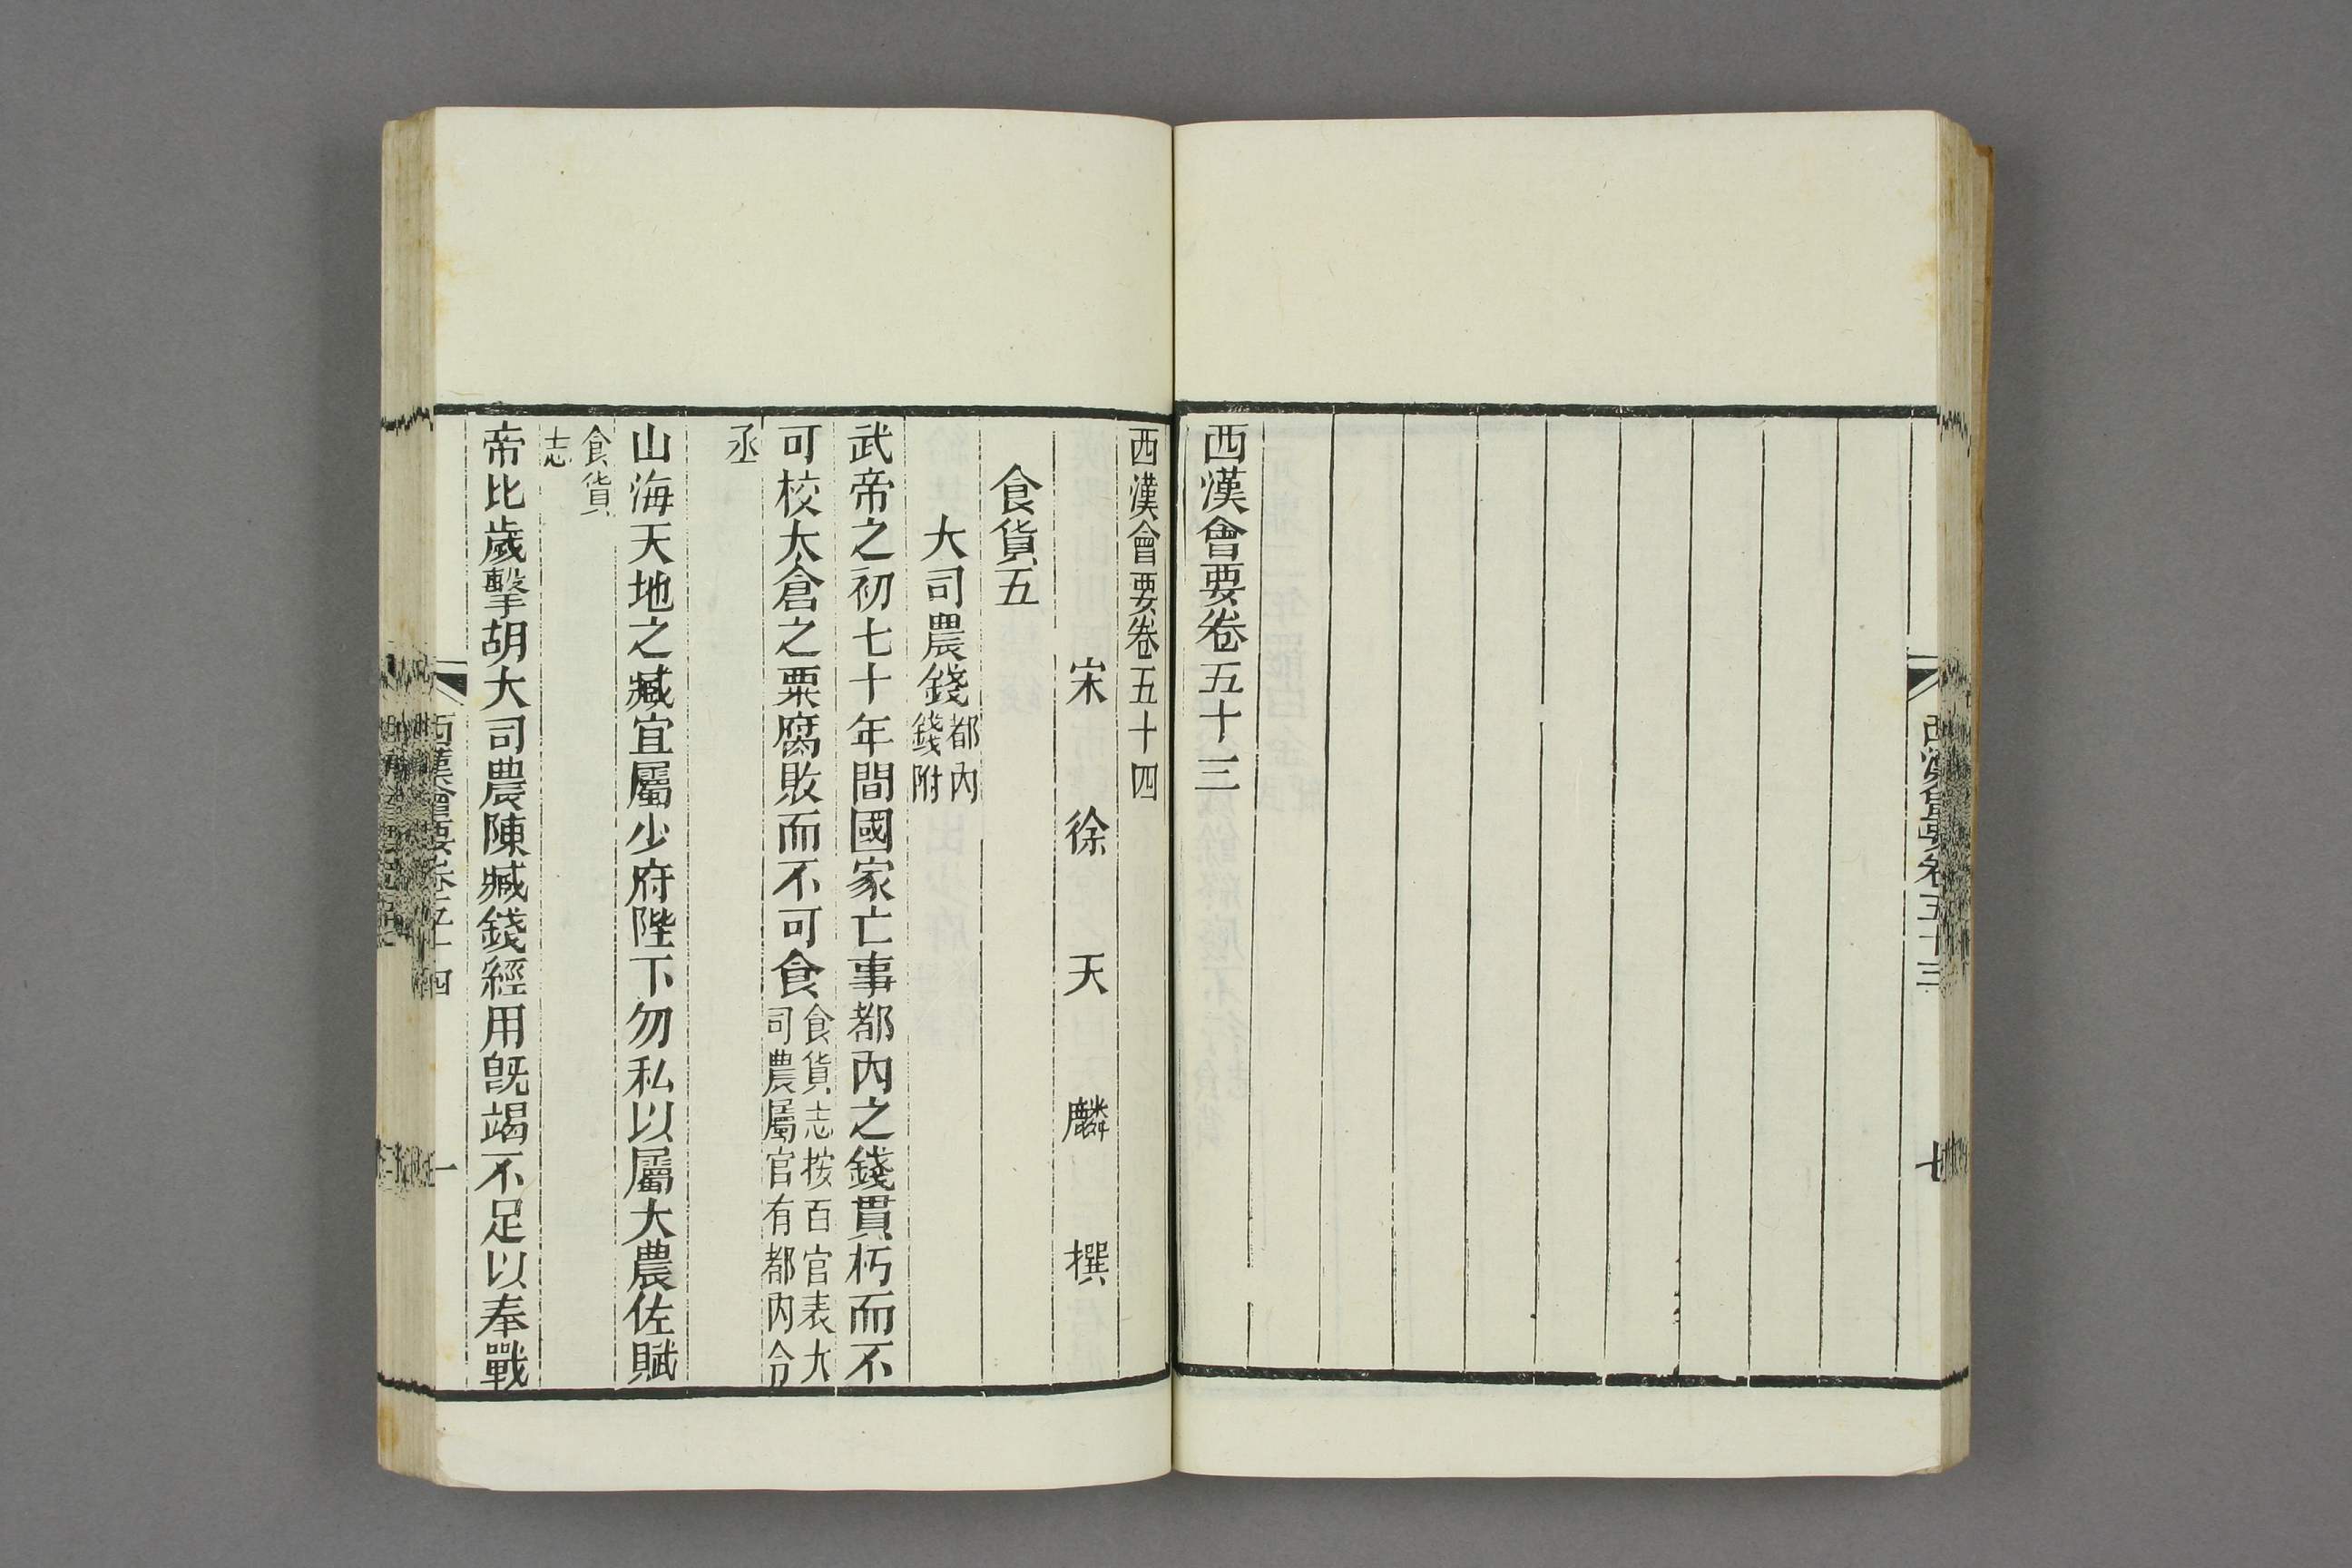 西漢會要卷五十三
七
西漢會要卷五十三
西漢會要卷五十四
宋徐天麟撰
食貨五
大司農錢都內錢附
武帝之初七十年間國家亡事都內之錢貫朽而不
可校太倉之粟腐敗而不可食食貨志按百官表大司農屬官有都內令
丞
山海天地之臧宜屬少府陛下勿私以屬大農佐賦
食貨志
帝比歲擊胡大司農陳臧錢經用旣竭不足以奉戰
西漢會要卷五十四
一